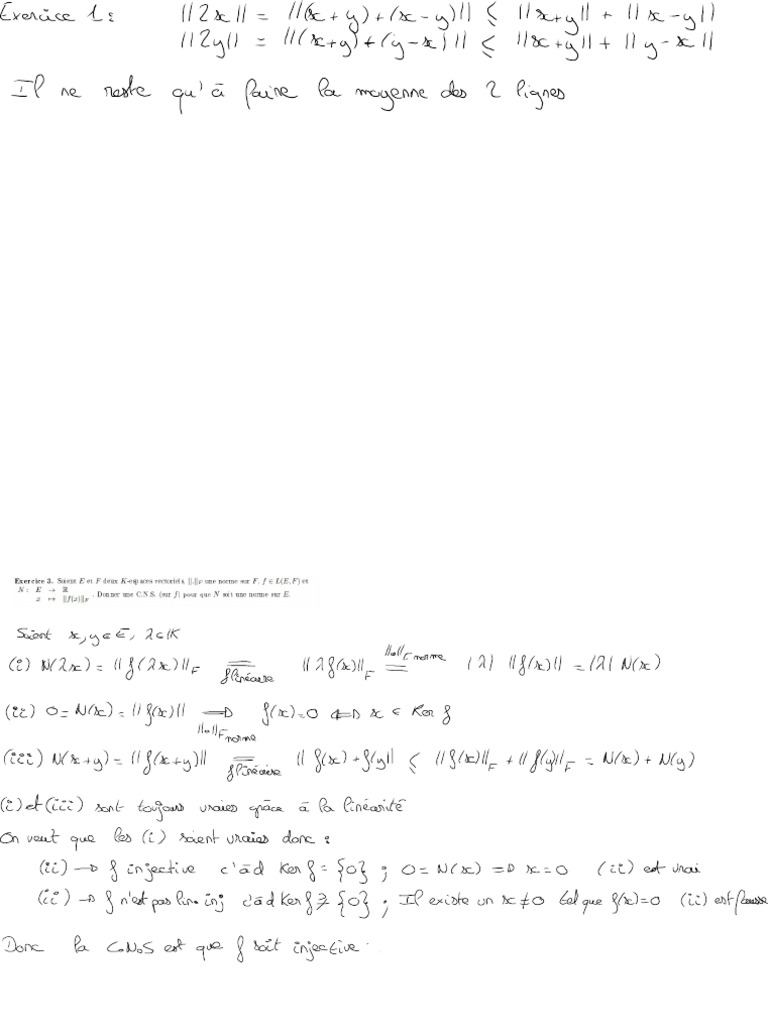 Exercice 1 : ||2x|| = ||(x+y)+(x-y)|| ⩽ ||x+y|| + ||x-y||
||2y|| = ||(x+y)+(y-x)|| ⩽ ||x+y|| + ||y-x||
Il ne reste qu'à faire la moyenne des 2 lignes
Exercice 3. Soient E et F deux K-espaces vectoriels, ||.||_F une norme sur F, f ∈ L(E,F) et
N : E → ℝ
x ↦ ||f(x)||_F . Donner une C.N.S. (sur f) pour que N soit une norme sur E.
Soient x, y ∈ E, λ ∈ IK
(i) N(λx) = ||f(λx)||_F = f linéaire ||λ f(x)||_F = ||.||_F norme |λ| ||f(x)|| = |λ| N(x)
(ii) 0 = N(x) = ||f(x)|| ⇒ ||.||_F norme f(x)=0 ⇔ x ∈ Ker f
(iii) N(x+y) = ||f(x+y)|| = f linéaire || f(x) + f(y|| ⩽ ||f(x)||_F + ||f(y)||_F = N(x) + N(y)
(i) et (iii) sont toujours vraies grâce à la linéarité
On veut que les (i) soient vraies donc :
(ii) → f injective c'àd Ker f = {0} ; 0 = N(x) ⇒ x=0 (ii) est vrai
(ii) → f n'est pas inj c'àd Ker f ≠ {0} ; Il existe un x ≠ 0 tel que f(x)=0 (ii) est fausse
Donc la C.N.S est que f soit injective.